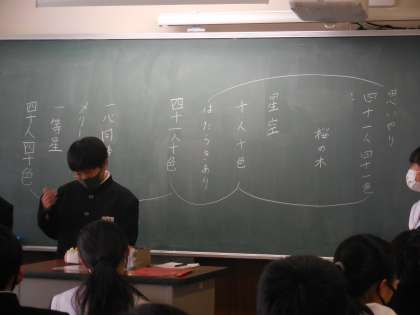 思いやり
四十一人四十一色
桜の木
星空
十人十色
はたつきあり
四十人十色
一心同
メリー
一等星
四十人四十色